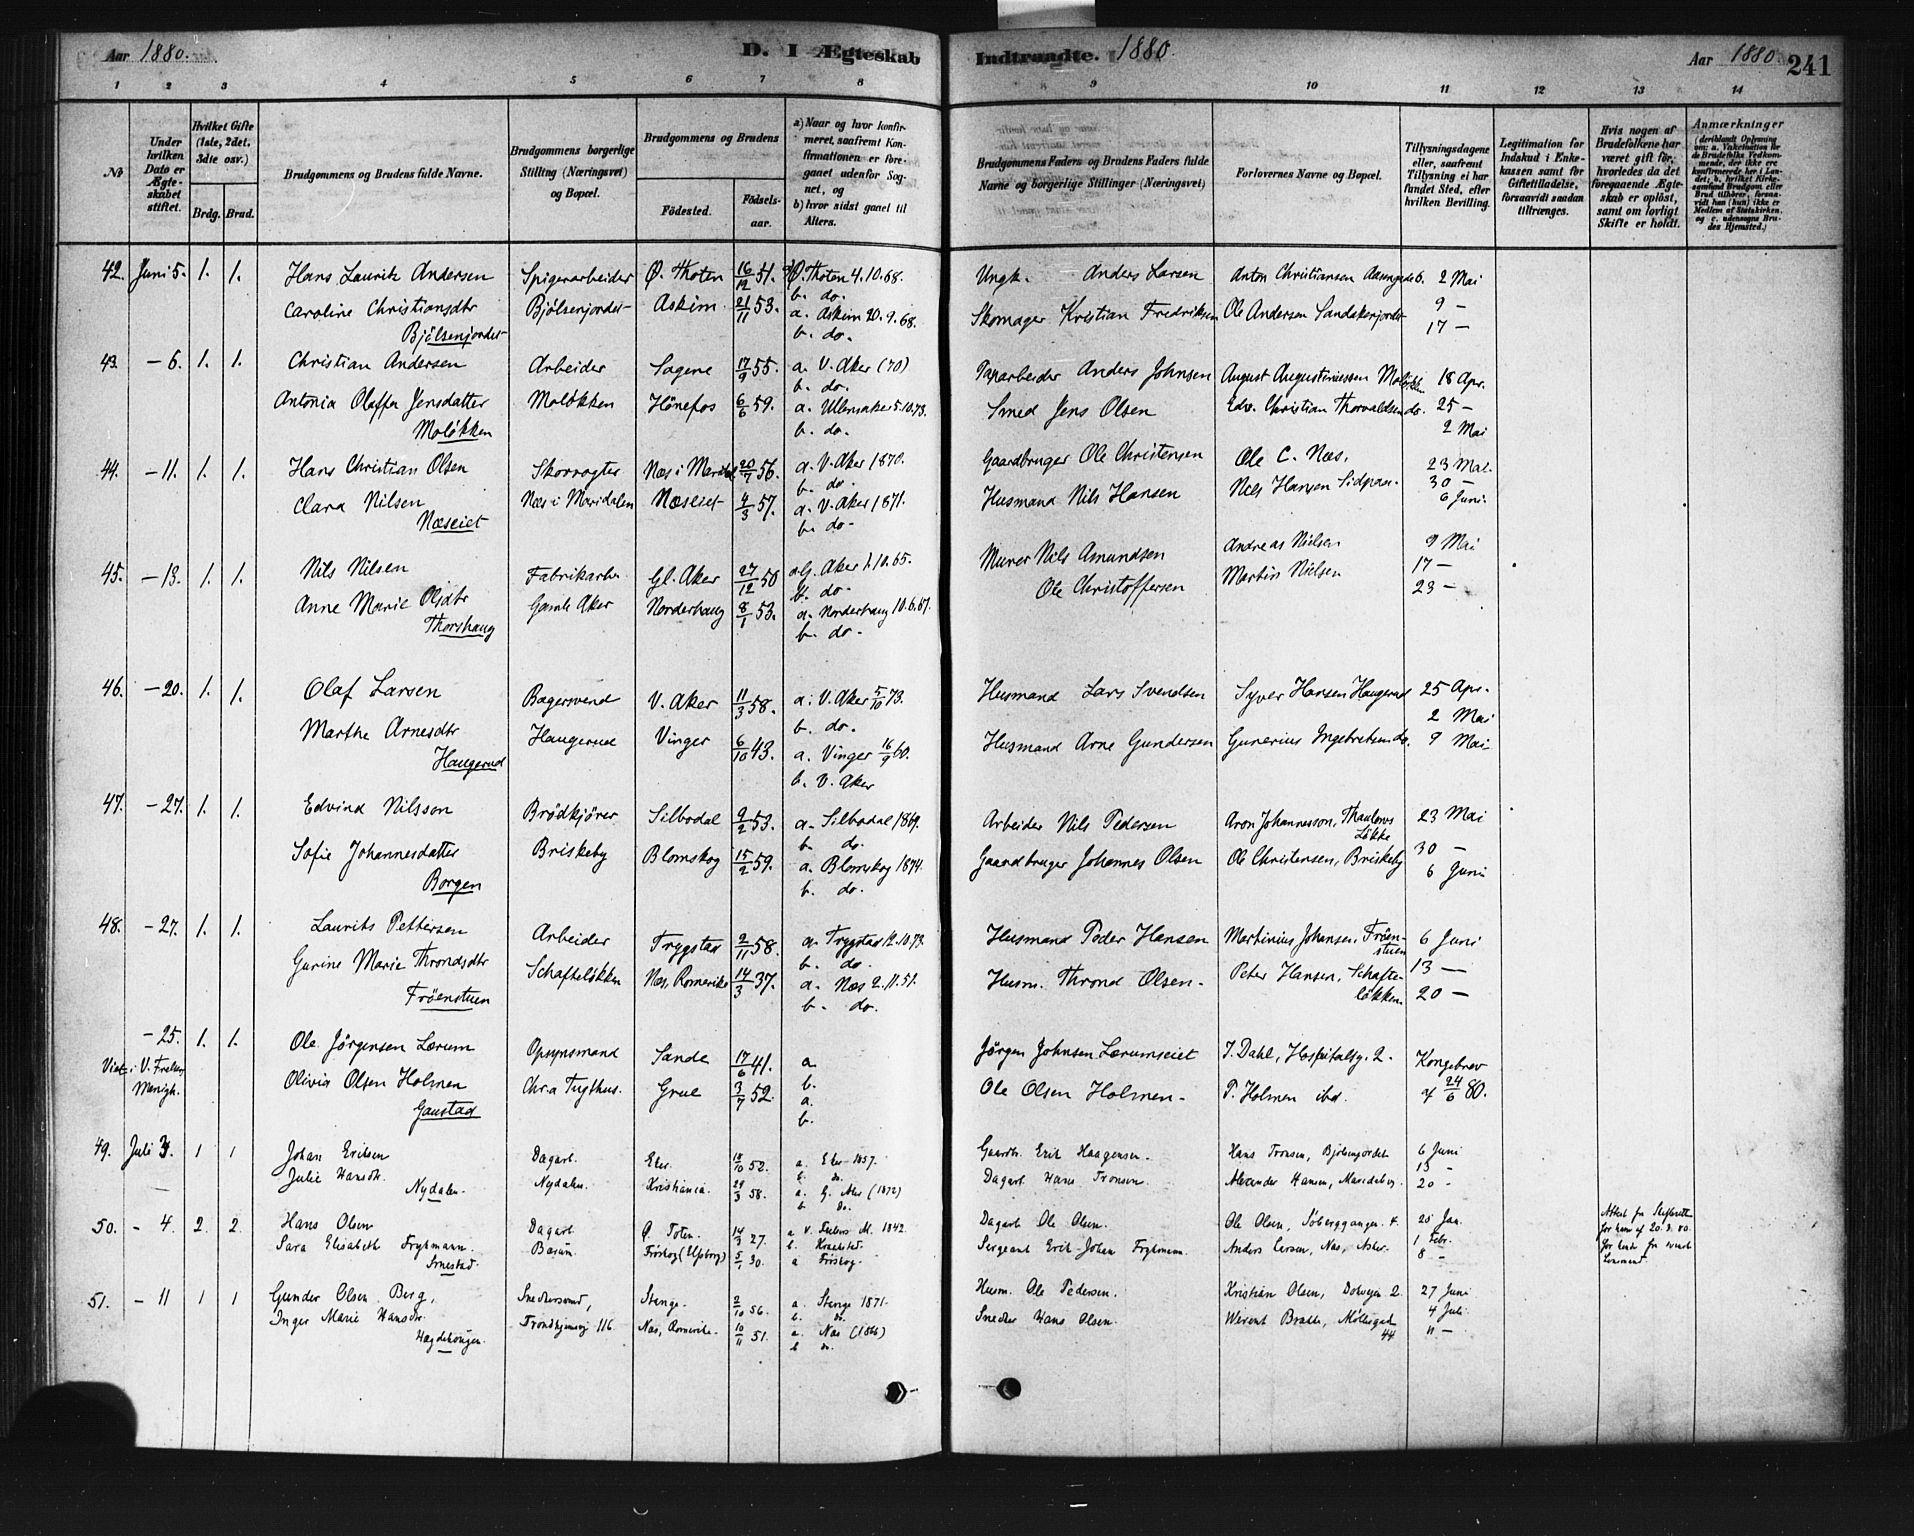 Aar 1880.
D. I Ægteskab
Indtraadte. 1880.
Aar 1880.
241
1 2 3 4 5 6 7 8 9 10 11 12 13 14
No
Under hvilken Dato er Ægteskabet stiftet.
Hvilket Gifte (1ste, 2det, 3die osv.)
Brdg. Brud.
Brudgommens og Brudens fulde Navne.
Brudgommens borgerlige Stilling (Næringsvei) og Bopæl.
Brudgommens og Brudens
Fødested.
Fødselsaar.
a) Naar og hvor konfirmeret, saafremt Konfirmationen er foregaaet udenfor Sognet, og
b) hvor sidst gaaet til Alters.
Brudgommens Faders og Brudens Faders fulde Navne og borgerlige Stillinger (Næringsvei)
Forlovernes Navne og Bopæl.
Tillysningsdagene eller, saafremt Tillysning ei har fundet Sted, efter hvilken Bevilling.
Legitimation for Indskud i Enkekassen samt for Giftetilladelse, forsaavidt saadan tiltrænges.
Hvis nogen af Brudefolkene har været gift før, hvorledes da det foregaaende Ægteskab er opløst, samt om lovligt Skifte er holdt.
Anmærkninger
42. Juni 5. 1. 1. Hans Lauritz Andersen Spigerarbeider Ø. Thoten 16/12 51. a. Ø. Thoten 4.10.68. Ungk. Anders Larsen Anton Christiansen 2 Mai
b. do.
Caroline Christiansdtr Bjölsenjordet Askim 21/11 53. a. Askim 20.9.68. Skomager Kristian Fredriksen Ole Andersen Sandakerjordet 9 –
Bjölsenjordet b. do. 17 –
43. – 6. 1. 1. Christian Andersen Arbeider Sagene 17/9 55. a. V. Aker (70) Paparbeider Anders Johnsen August Augustiniussen 18 Apr.
b. do.
Antonia Oloffa Jensdatter Moløkken Hönefos 6/6 59. a. Ullensaker 5.10.73. Smed Jens Olsen Edv. Christian Thorvaldsen do. 25 –
Moløkken b. do. 2 Mai
44. – 11. 1. 1. Hans Christian Olsen Skovvogter Næs i Marid. 20/7 56. a. V. Aker 1870. Gaardbruger Ole Christensen Ole C. Næs. 23 Mai.
b. do. 30 –
Clara Nilsen Næs i Maridalen Næseiet 4/3 57. a. V. Aker 1871. Husmand Nils Hansen Nils Hansen 6 Juni.
Næseiet b. do.
45. – 13. 1. 1. Nils Nilsen Fabrikarb. Gl. Aker 27/12 50 a. G. Aker 1.10.65. Murer Nils Amundsen Andreas Nielsen 9 Mai
b. do. 17 –
Anne Marie Olsdtr Gamle Aker Norderhaug 8/1 53. a. Norderhaug 10.6.67. Ole Christoffersen Martin Nielsen 23 –
Thorshaug b. do.
46. – 20. 1. 1. Olaf Larsen Bagersvend V. Aker 11/3 58. a. V. Aker 5/10 73. Husmand Lars Svendsen Syver Hansen Haugerud 25 Apr.
b. do. 2 Mai
Marthe Arnesdtr Haugerud Vinger 6/10 43. a. Vinger 16/9 60. Husmand Arne Gundersen Gunerius Ingebretsen do. 9 Mai
Haugerud b. V. Aker
47. – 27. 1. 1. Edvind Nilsson Brødkjører Silbodal 9/2 53. a. Silbodal 1869. Arbeider Nils Pedersen Aron Johannesson, Thaulows Løkke 23 Mai
b. do. 30 –
Sofie Johannesdatter Briskeby Blomskog 15/2 59. a. Blomskog 1874. Gaardbruger Johannes Olsen Ole Christensen, Briskeby 6 Juni
Borgen b. do.
48. – 27. 1. 1. Laurits Pettersen Arbeider Trygstad 2/11 58. a. Trygstad 12.10.73. Husmand Peder Hansen Martinius Johansen, Fröenstuen 6 Juni
b. do.
Gurine Marie Throndsdtr Schafteløkken Næs, Romerike 14/3 37. a. Næs 2.11.51. Husm. Thrond Olsen. Peter Hansen, Schafteløkken 13 –
Fröenstuen b. do. 20 –
– 25. 1. 1. Ole Jörgensen Lærum Opsynsmand Sande 17/6 41. a. Jörgen Johnsen Lærumseiet J. Dahl, Hospitalsg. 2. Kongebrev
Viet i V. Frelsers Menigh. b.
Olivia Olsen Holmen Chr.a Tugthus. Grue 3/7 52. a. Ole Olsen Holmen. P. Holmen ibd. 24/6 80.
Gaustad b.
49. Juli 3. 1 1 Johan Eriksen Dagarb. 18/10 52. a. Gaardbr. Erik Haagensen. Hans Tronsen, Bjölsenjordet 6 Juni
b. do. 13 –
Julie Hansdtr. Nydalen. Kristiania. 29/3 58. a. G. Aker (1872) Dagarb. Hans Tronsen. Alexander Hansen, 20 –
Nydalen. b. do.
50. – 4. 2. 2. Hans Olsen Dagarb. Ø. Toten. 14/3 27. a. 1842. Dagarb. Ole Olsen. Ole Olsen, 4. 25 Jan.
b. 1 Febr.
Sara Elisabeth Frykmann. Bærum. 5/1 30. a Sergeant Erik Johan Frykmann. Anders Larsen, Næs, Asker. 8 –
51. – 11 1 1 Gunder Olsen Berg, Snedkersvend, Stange. 2/10 56. a. Stange 1871. Husm. Ole Pedersen. Kristian Olsen, 2. 27 Juni
b. do. 4 Juli
Inger Marie Hansdtr. Trondhjemsvej 116. Næs, Romerike. 10/11 51. a. Næs (1866) Snedker Hans Olsen. Bratli, Møllergad. 44 11 –
Hægdehaugen. b do.